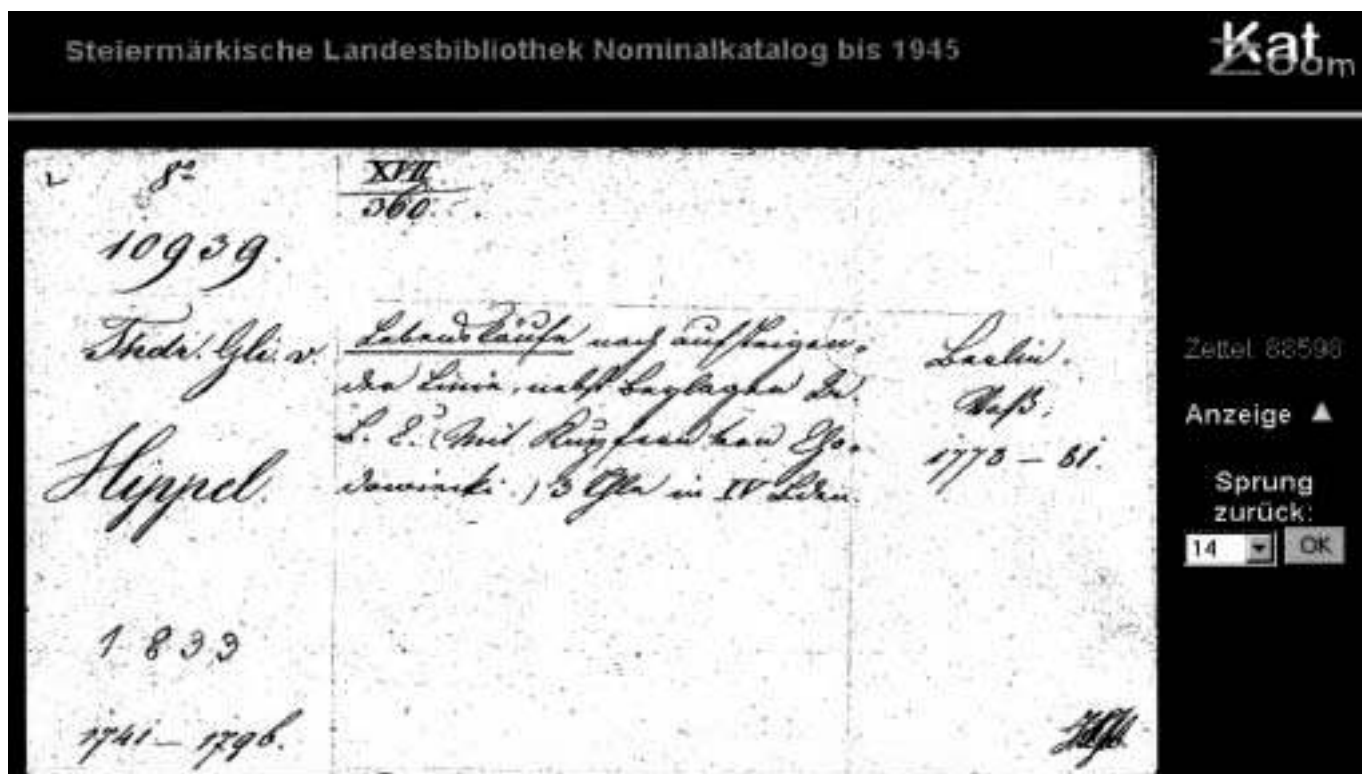 Steiermärkische Landesbibliothek Nominalkatalog bis 1945
KatZoom
8º
XVII.
360.
10939.
Thdr. Gli. v.
Hippel.
Lebensläufe nach aufsteigen-
der Linie, nebst Beylagen A.
B. C. (Mit Kupfern von Cho-
dowiecki.) 3 Thle in IV Bden.
Berlin.
Voß.
1778 – 81.
1833
1741 – 1796.
Zettel 88598
Anzeige ▲
Sprung
zurück:
14
OK